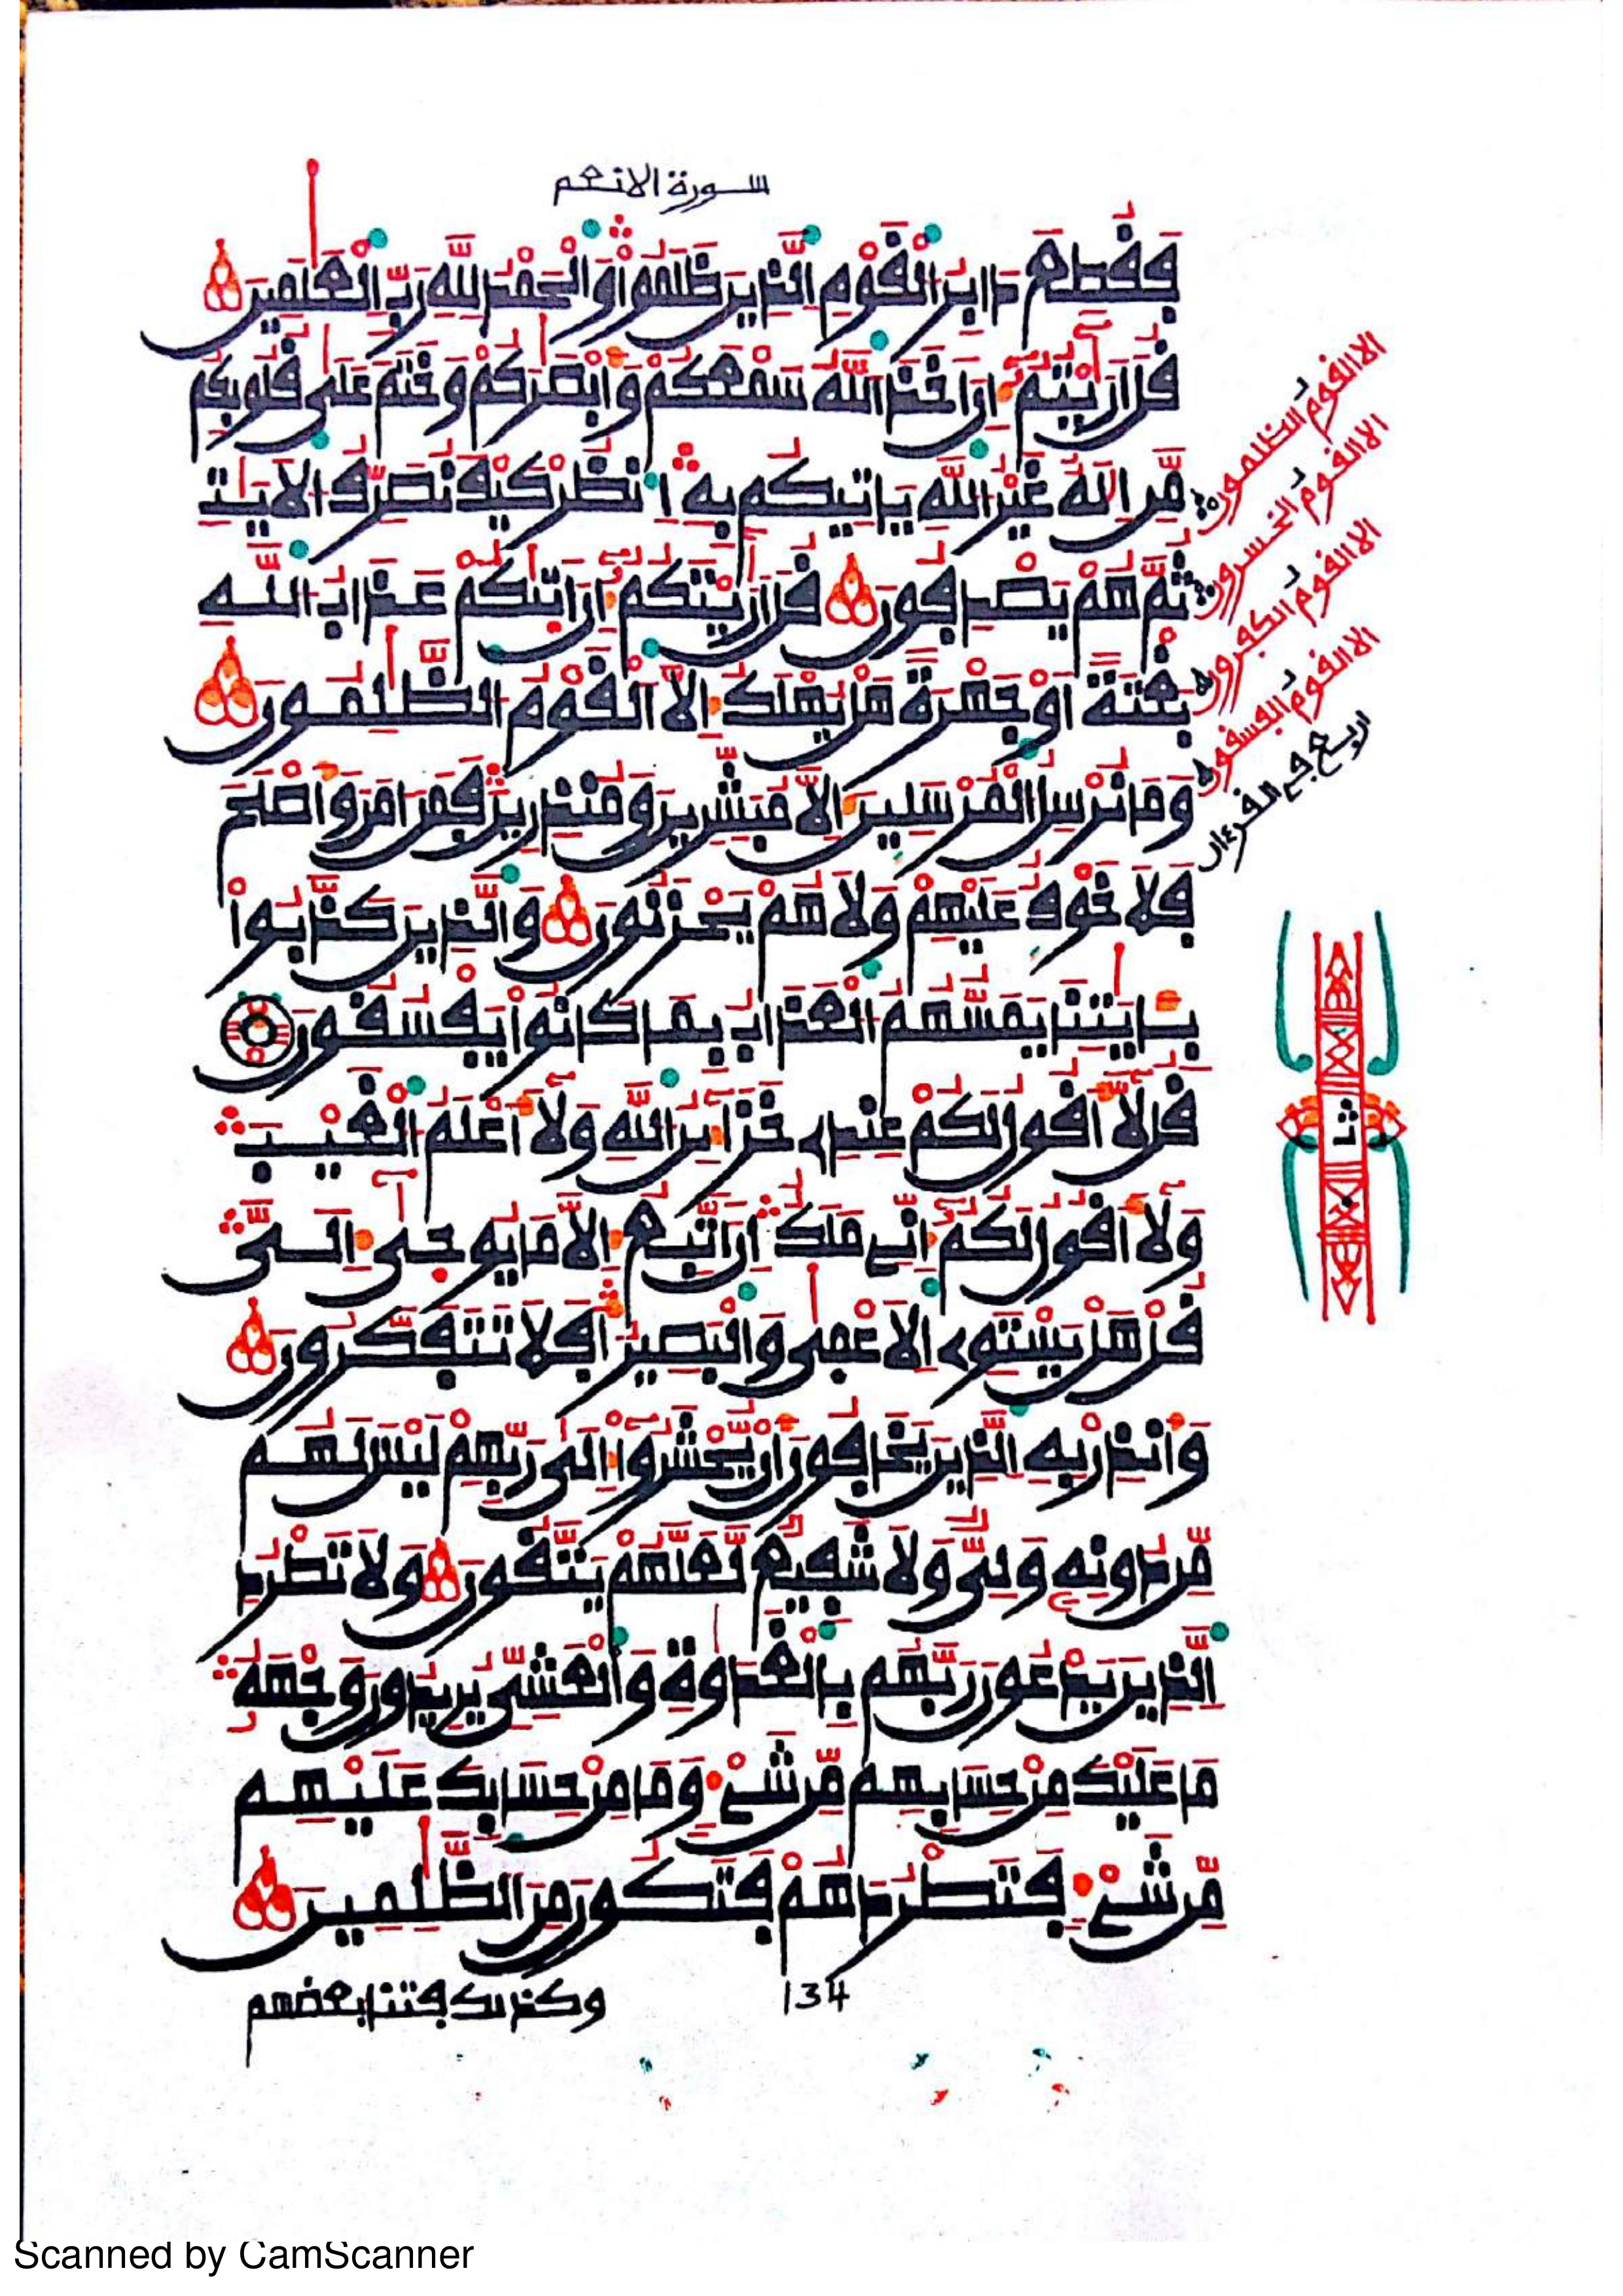 سورة الانعم
فَقُطِعَ دَابِرُ الْقَوْمِ الَّذِينَ ظَلَمُواْ وَالْحَمْدُ لِلَّهِ رَبِّ الْعَٰلَمِينَ
قُلَ اَرَٰيْتُمُۥٓ إِنَ اَخَذَ اللَّهُ سَمْعَكُمْ وَأَبْصَٰرَكُمْ وَخَتَمَ عَلَىٰ قُلُوبِكُم
مَّنِ اِلَٰهٌ غَيْرُ اللَّهِ يَاتِيكُم بِهِ اِ۟نظُرْ كَيْفَ نُصَرِّفُ الَايَٰتِ
ثُمَّ هُمْ يَصْدِفُونَ قُلَ اَرَٰيْتَكُمُۥٓ إِنَ اَتَىٰكُمْ عَذَابُ اللَّهِ
بَغْتَةً اَوْ جَهْرَةً هَلْ يُهْلَكُ إِلَّا الْقَوْمُ الظَّٰلِمُونَ
وَمَا نُرْسِلُ الْمُرْسَلِينَ إِلَّا مُبَشِّرِينَ وَمُنذِرِينَ فَمَنَ اٰمَنَ وَأَصْلَحَ
فَلَا خَوْفٌ عَلَيْهِمْ وَلَا هُمْ يَحْزَنُونَ وَالَّذِينَ كَذَّبُواْ
بِـَٔايَٰتِنَا يَمَسُّهُمُ الْعَذَابُ بِمَا كَانُواْ يَفْسُقُونَ
قُل لَّآ أَقُولُ لَكُمْ عِندِے خَزَآئِنُ اللَّهِ وَلَآ أَعْلَمُ الْغَيْبَ
وَلَآ أَقُولُ لَكُمُۥٓ إِنِّے مَلَكٌ اِنَ اَتَّبِعُ إِلَّا مَا يُوحَىٰٓ إِلَيَّ
قُلْ هَلْ يَسْتَوِے الَاعْمَىٰ وَالْبَصِيرُ أَفَلَا تَتَفَكَّرُونَ
وَأَنذِرْ بِهِ الَّذِينَ يَخَافُونَ أَنْ يُّحْشَرُوٓاْ إِلَىٰ رَبِّهِمْ لَيْسَ لَهُم
مِّن دُونِهِۦ وَلِيٌّ وَلَا شَفِيعٌ لَّعَلَّهُمْ يَتَّقُونَ وَلَا تَطْرُدِ
الَّذِينَ يَدْعُونَ رَبَّهُم بِالْغَدَوٰةِ وَالْعَشِيِّ يُرِيدُونَ وَجْهَهُۥ
مَا عَلَيْكَ مِنْ حِسَابِهِم مِّن شَيْءٍ وَمَا مِنْ حِسَابِكَ عَلَيْهِم
مِّن شَيْءٍ فَتَطْرُدَهُمْ فَتَكُونَ مِنَ الظَّٰلِمِينَ
الا القوم الظلمون
الا القوم الخسرون
الا القوم الكفرون
الا القوم الفسقون
اربع في القرءان
ثمن
134
وكذلك فتنا بعضهم
Scanned by CamScanner